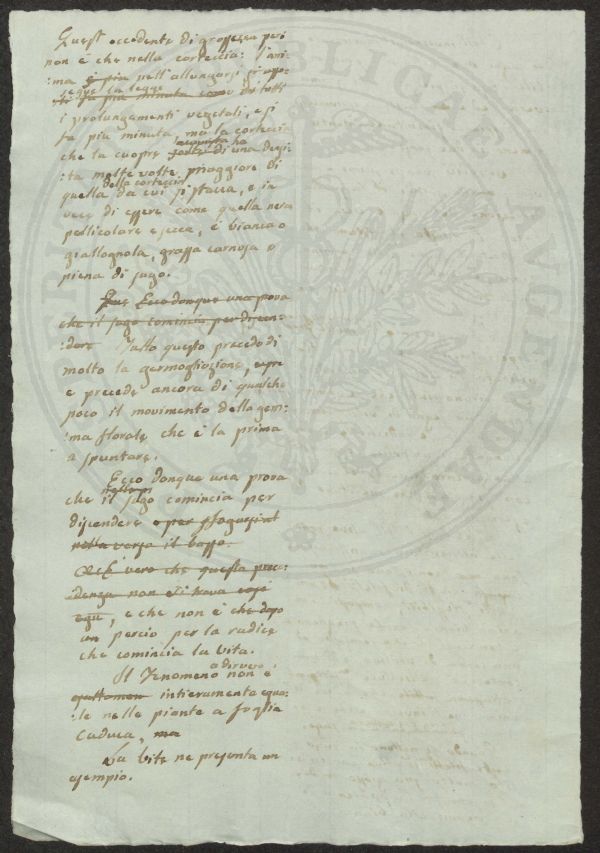 Quest eccedente di grossezza però
non è che nella corteccia: l'ani:
:ma è più nell'allungarsi si
segue la legge
sti fa più minuta di tutti
i prolungamenti vegetali, e si
fa più minuta, ma la corteccia
acquista ha
che la cuopre forte di una densi:
:tà molte volte maggiore di
della corteccia
quella da cui si stacca, e in
vece di essere come quella nera
pellicolare e secca, è bianca o
giallognola, grassa carnosa e
piena di sugo.
Ecco donque una prova
che il sugo comincia per discen:
:dere Tutto questo precede di
molto la germogliazione,
e precede ancora di qualche
poco il movimento della gem:
:ma florale che è la prima
a spuntare.
Ecco donque una prova
che il sugo comincia per
discendere e per
nella verso il basso.
È vero che questa prece:
:denza non si trova
, e che non è che dopo
un perciò per la radice
che comincia la vita.
a dir vero
Il Fenomeno non è
intieramente equa:
:le nelle piante a foglia
caduca, ma
La vite ne presenta un
esempio.